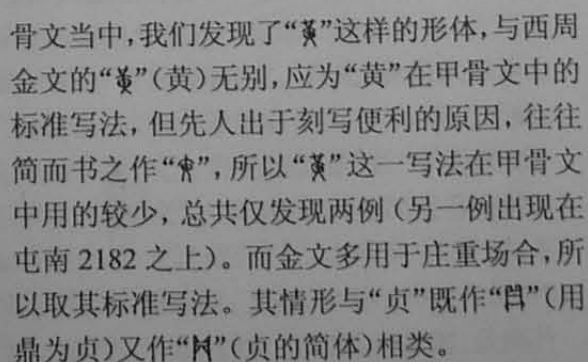 骨文当中,我们发现了“”这样的形体,与西周
金文的“”(黄)无别,应为“黄”在甲骨文中的
标准写法,但先人出于刻写便利的原因,往往
简而书之作“”,所以“”这一写法在甲骨文
中用的较少,总共仅发现两例(另一例出现在
屯南2182之上)。而金文多用于庄重场合,所
以取其标准写法。其情形与“贞”既作“”(用
鼎为贞)又作“”(贞的简体)相类。